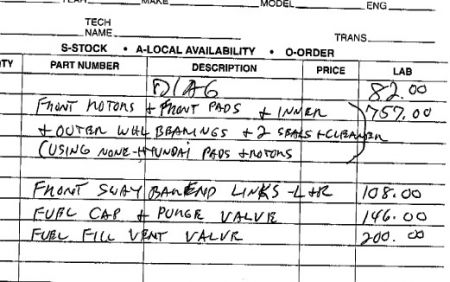 YEAR MAKE MODEL ENG
TECH
NAME TRANS
S-STOCK • A-LOCAL AVAILABILITY • O-ORDER
TY PART NUMBER DESCRIPTION PRICE LAB
DIAG 82.00
FRONT ROTORS + FRONT PADS + INNER 757.00
+ OUTER WHL BEARINGS + 2 SEALS + CLEANER
(USING NONE-HYUNDAI PADS + ROTORS
FRONT SWAY BAR END LINKS - L+R 108.00
FUEL CAP + PURGE VALVE 146.00
FUEL FILL VENT VALVE 200.00